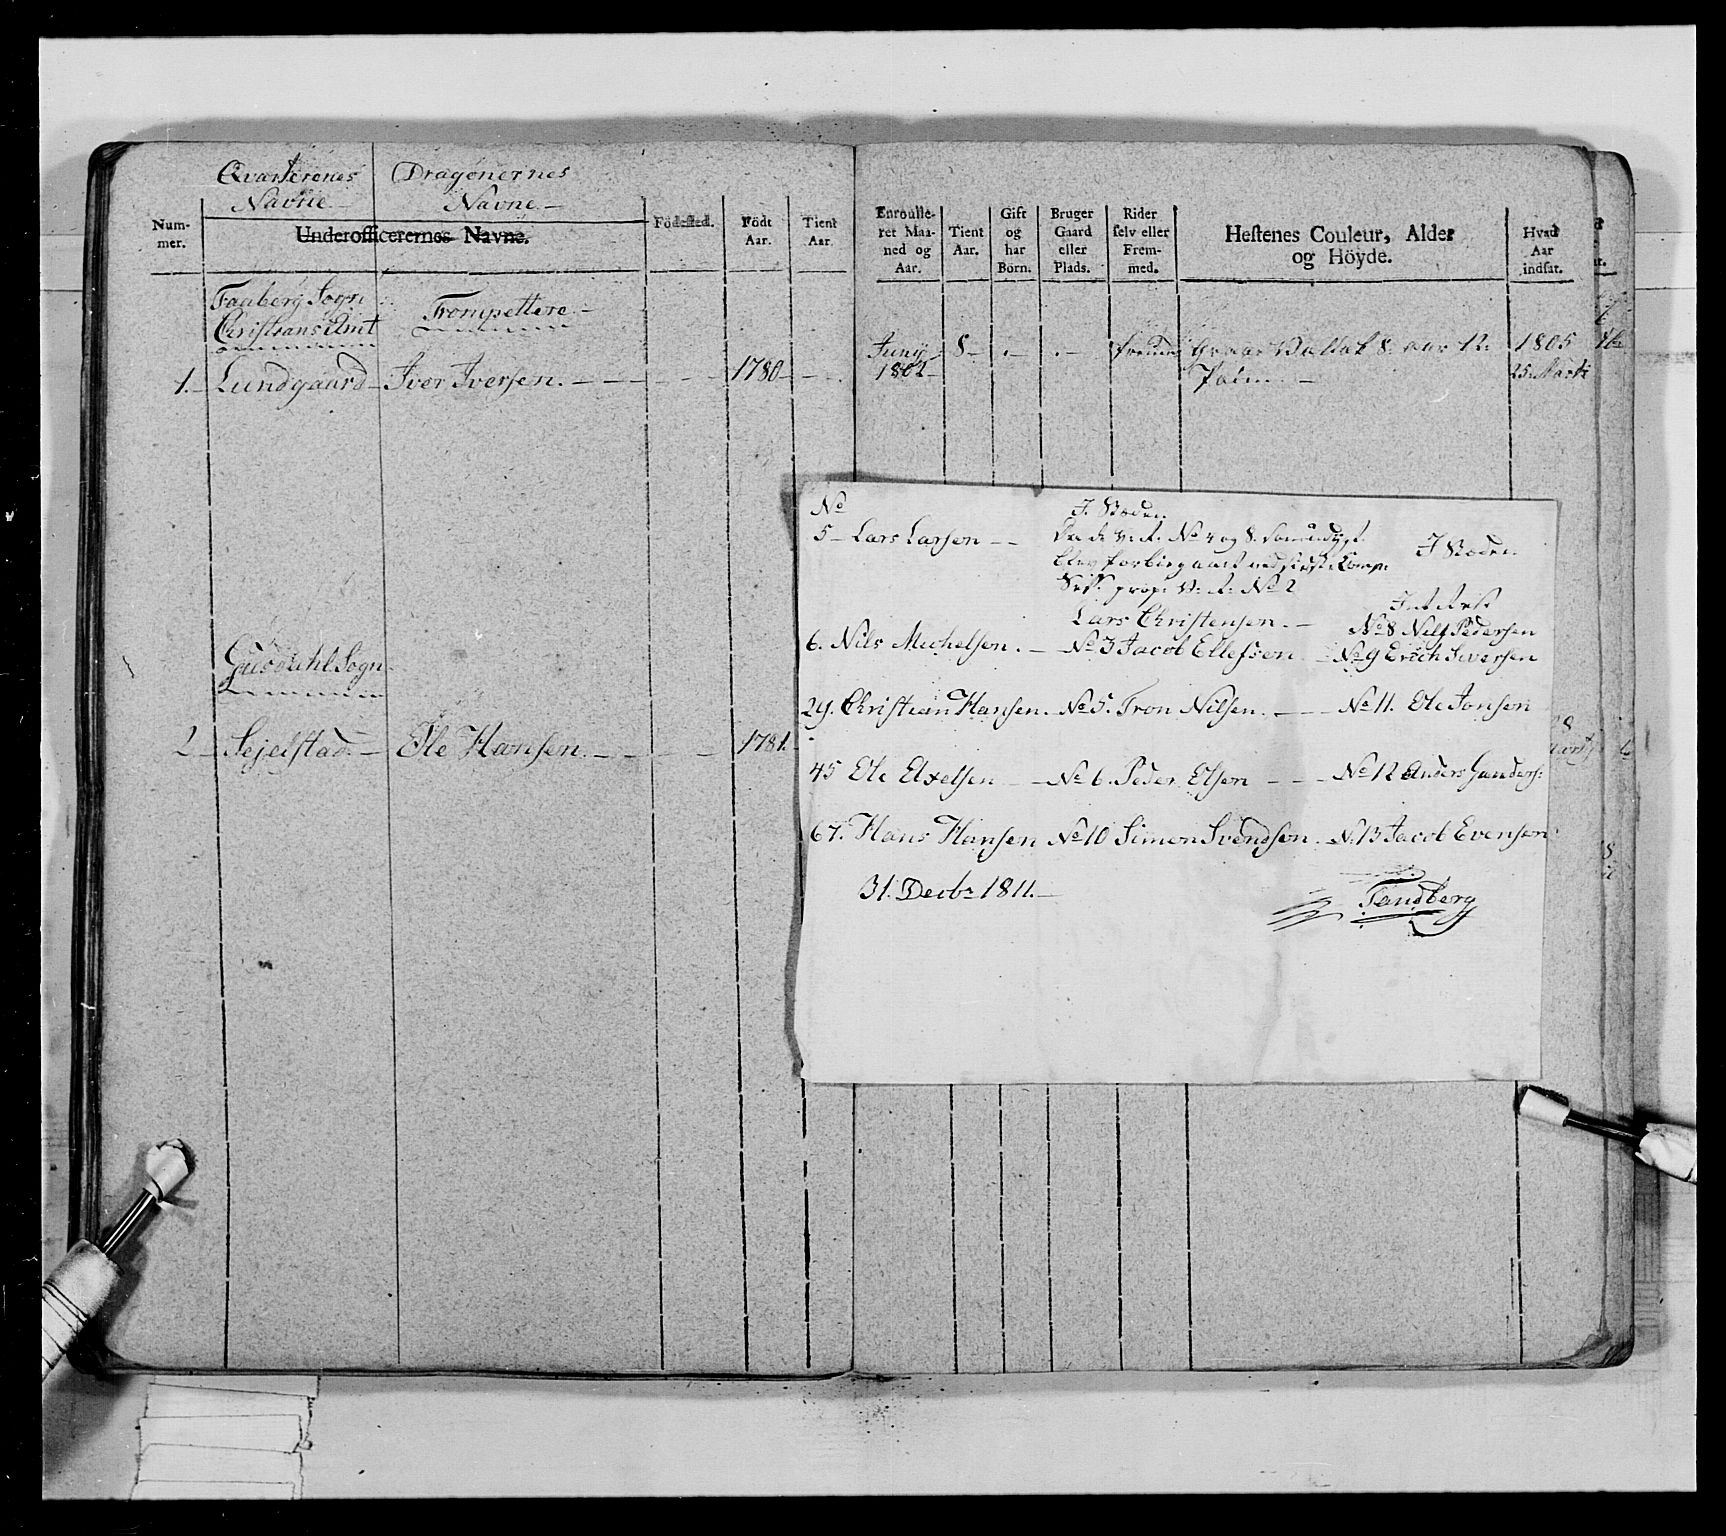 Qvarterenes Navne
Dragonernes Navne
Num-
mer.
Underofficerernes Navne.
Födested.
Födt
Aar.
Tient
Aar.
Enroulle-
ret Maa-
ned og
Aar.
Tient
Aar.
Gift
og
har
Börn.
Bruger
Gaard
eller
Plads.
Rider
selv eller
Frem-
med.
Hestenes Couleur, Alder
og Höyde.
Hvad
Aar
indsat.
Faaberg Sogn
Christians Amt
Trompettere
1. Lundgaard Iver Iversen. 1780
Juny
1802
8
1805
25 Marti
Gusdahl Sogn
2 Sejelstad Ole Hansen 1781.
No
5 Lars Larsen
I Stæden
No 4 og 8.
No 2
Lars Christensen.
I Stæden
No 8 Nels Pedersen
6. Nils Michelsen. No 3 Jacob Ellefsen No 9 Erich Iversen
29. Christian Hansen. No 5. Tron Nilsen. No 11. Ole Jonsen
45 Ole Axelsen No 6. Peder Olsen No 12 Anders Gunders:
67. Hans Hansen No 10 Simon Svendsen. No 13 Jacob Evensen
31. Decbr 1811.
Tandberg